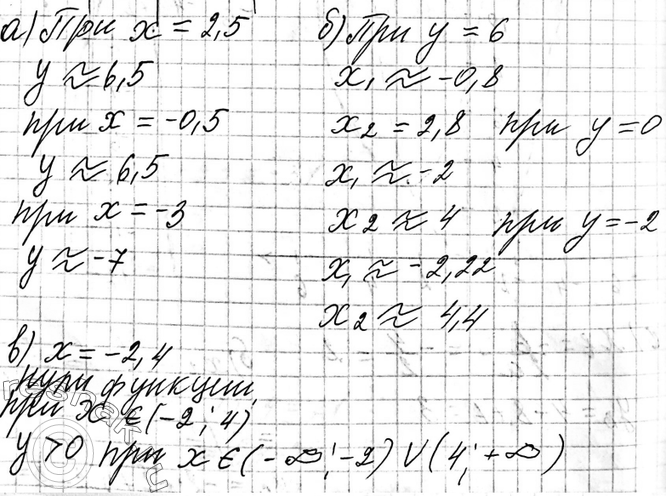 а) При x = 2,5
y ≈ 6,5
при x = -0,5
y ≈ 6,5
при x = -3
y ≈ -7
б) При y = 6
x₁ ≈ -0,8
x₂ = 2,8 при y = 0
x₁ ≈ -2
x₂ ≈ 4 при y = -2
x₁ ≈ -2,22
x₂ ≈ 4,4
в) x = -2,4
нули функции,
при x ∈ (-2; 4)
y > 0 при x ∈ (-∞; -2) ∪ (4; +∞)